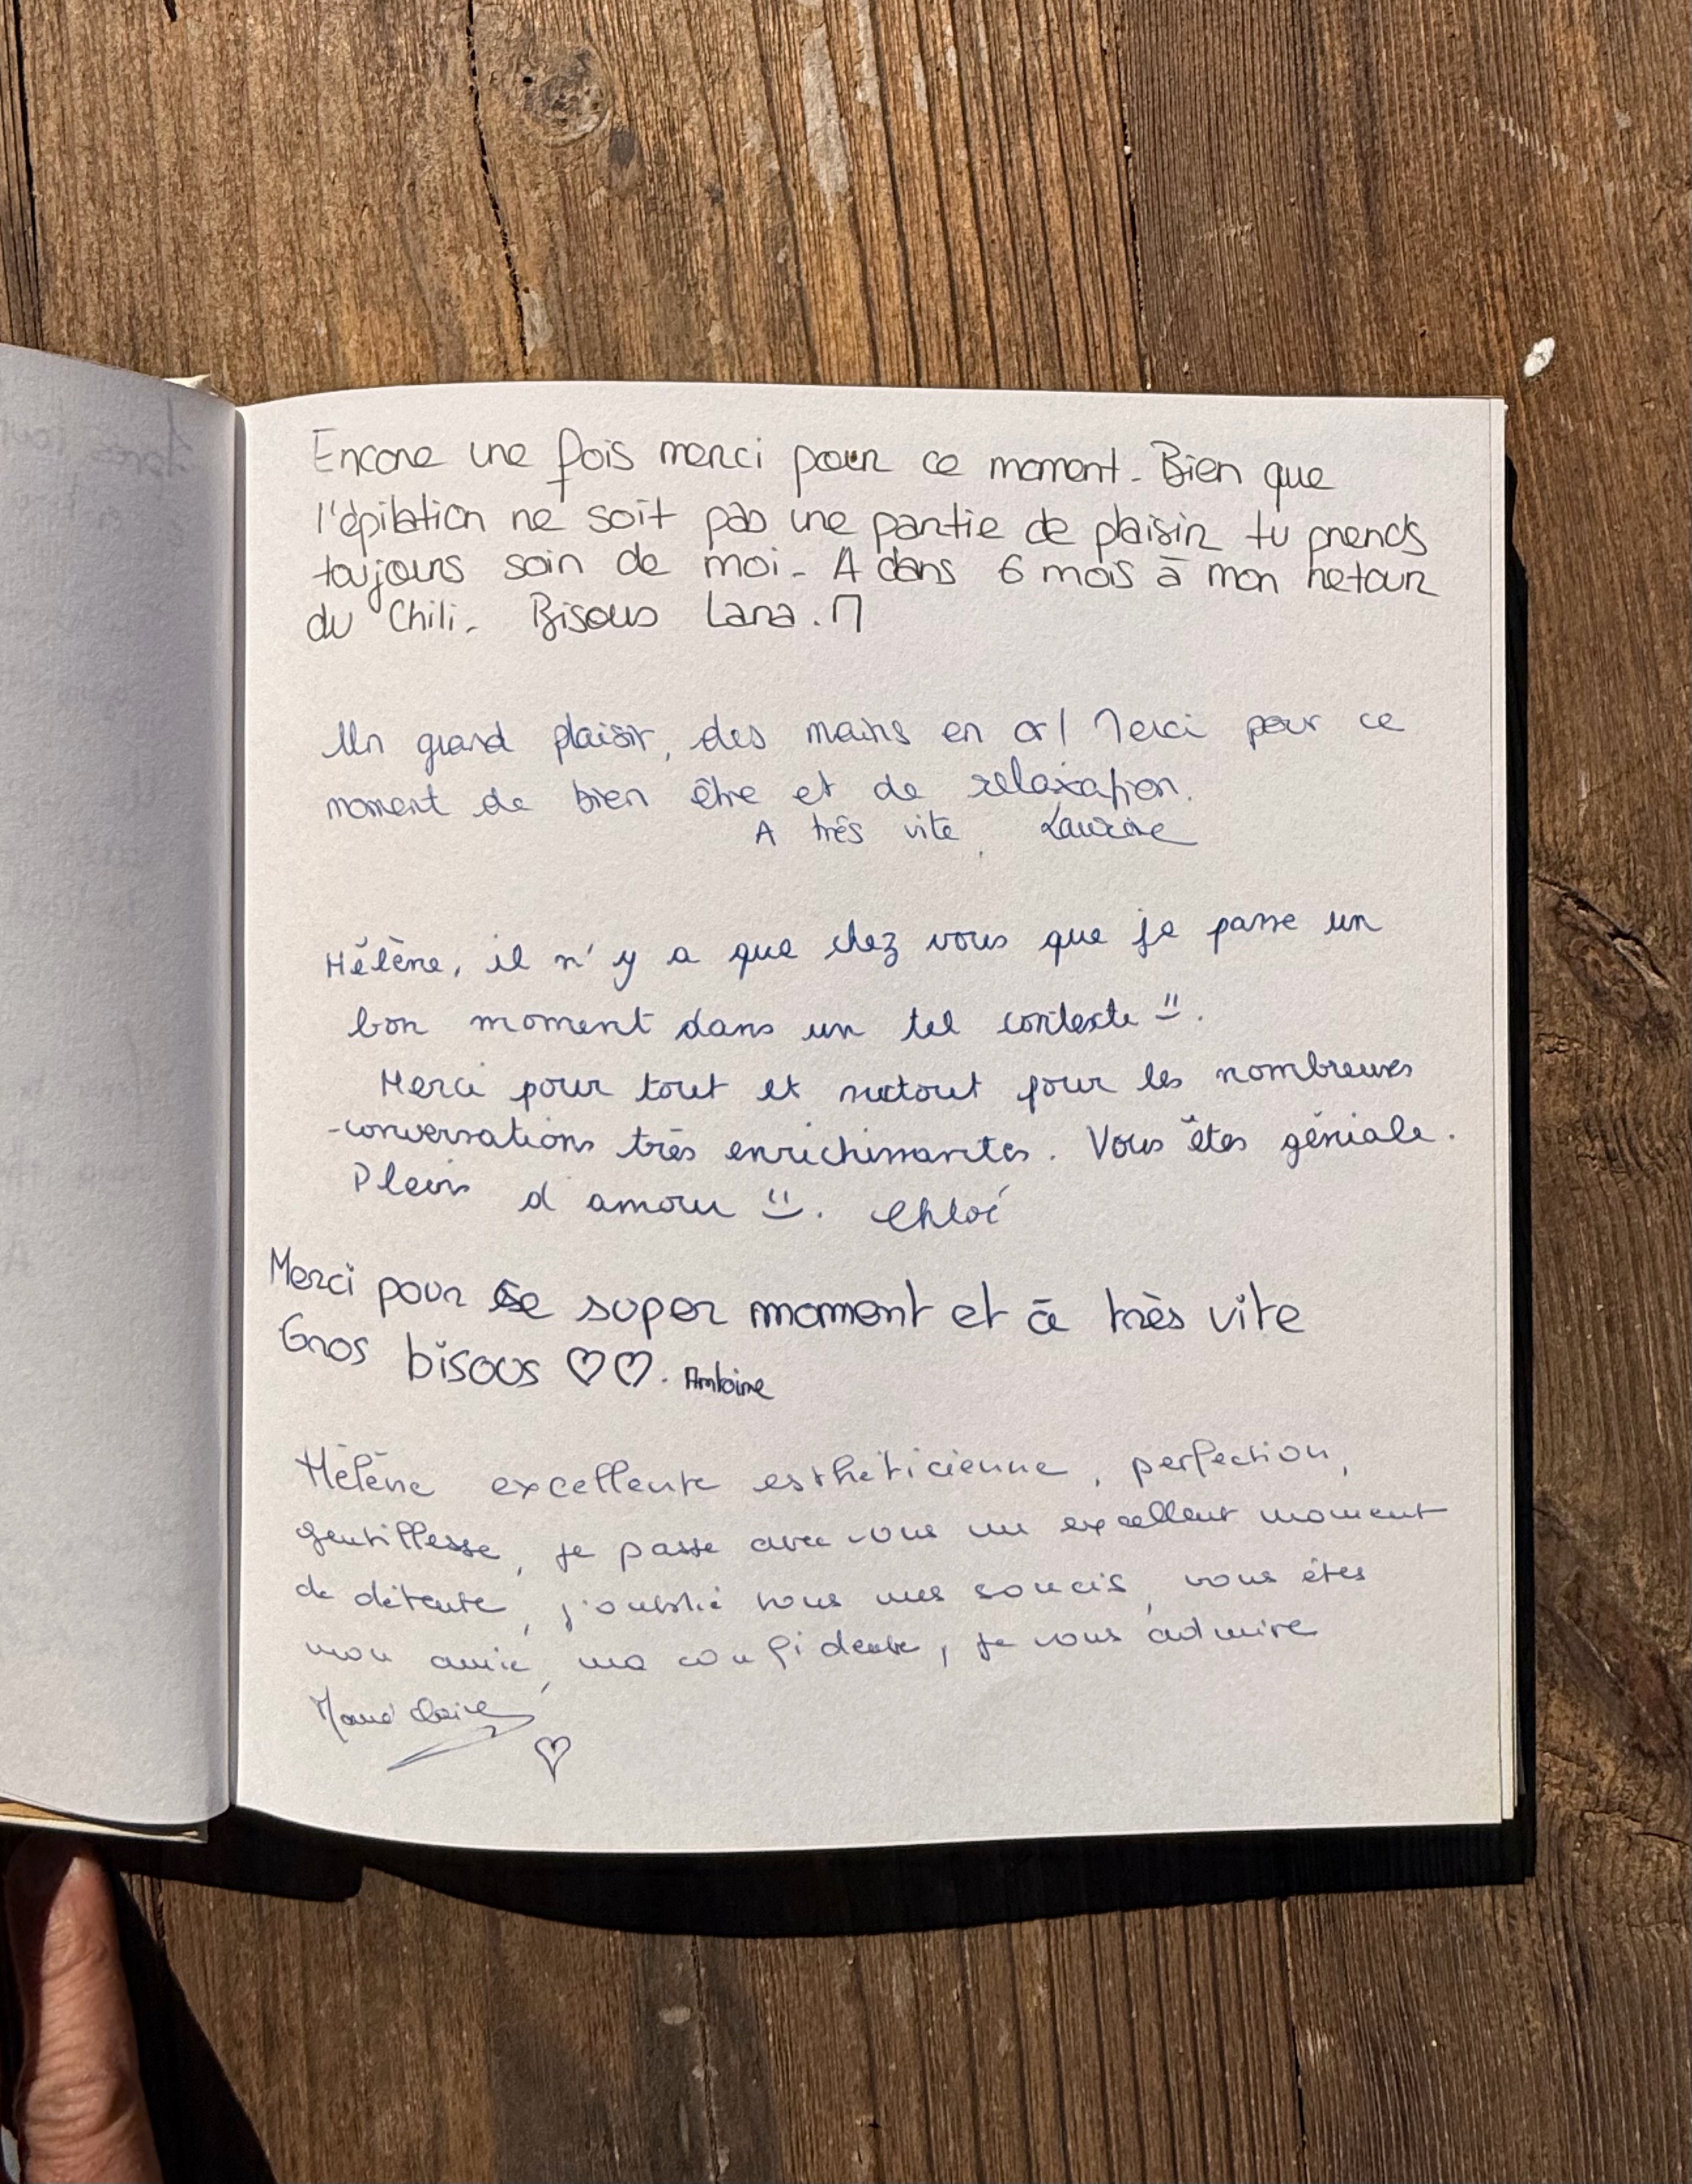 Encore une fois merci pour ce moment. Bien que
l'épilation ne soit pas une partie de plaisir tu prends
toujours soin de moi. A dans 6 mois à mon retour
du Chili. Bisous Lana. M
Un grand plaisir, des mains en or! Merci pour ce
moment de bien être et de relaxation.
A très vite
Hélène, il n'y a que chez vous que je passe un
bon moment dans un tel contexte =).
Merci pour tout et surtout pour les nombreuses
conversations très enrichissantes. Vous êtes géniale.
Pleins d'amour =). Chloé
Merci pour ce super moment et à très vite
Gros bisous ♡♡. Antoine
Hélène excellente esthéticienne, perfection,
gentillesse, je passe avec vous un excellent moment
de détente, j'oublie tous mes soucis, vous êtes
mon amie, ma confidente, je vous admire
Marie Claire
♡